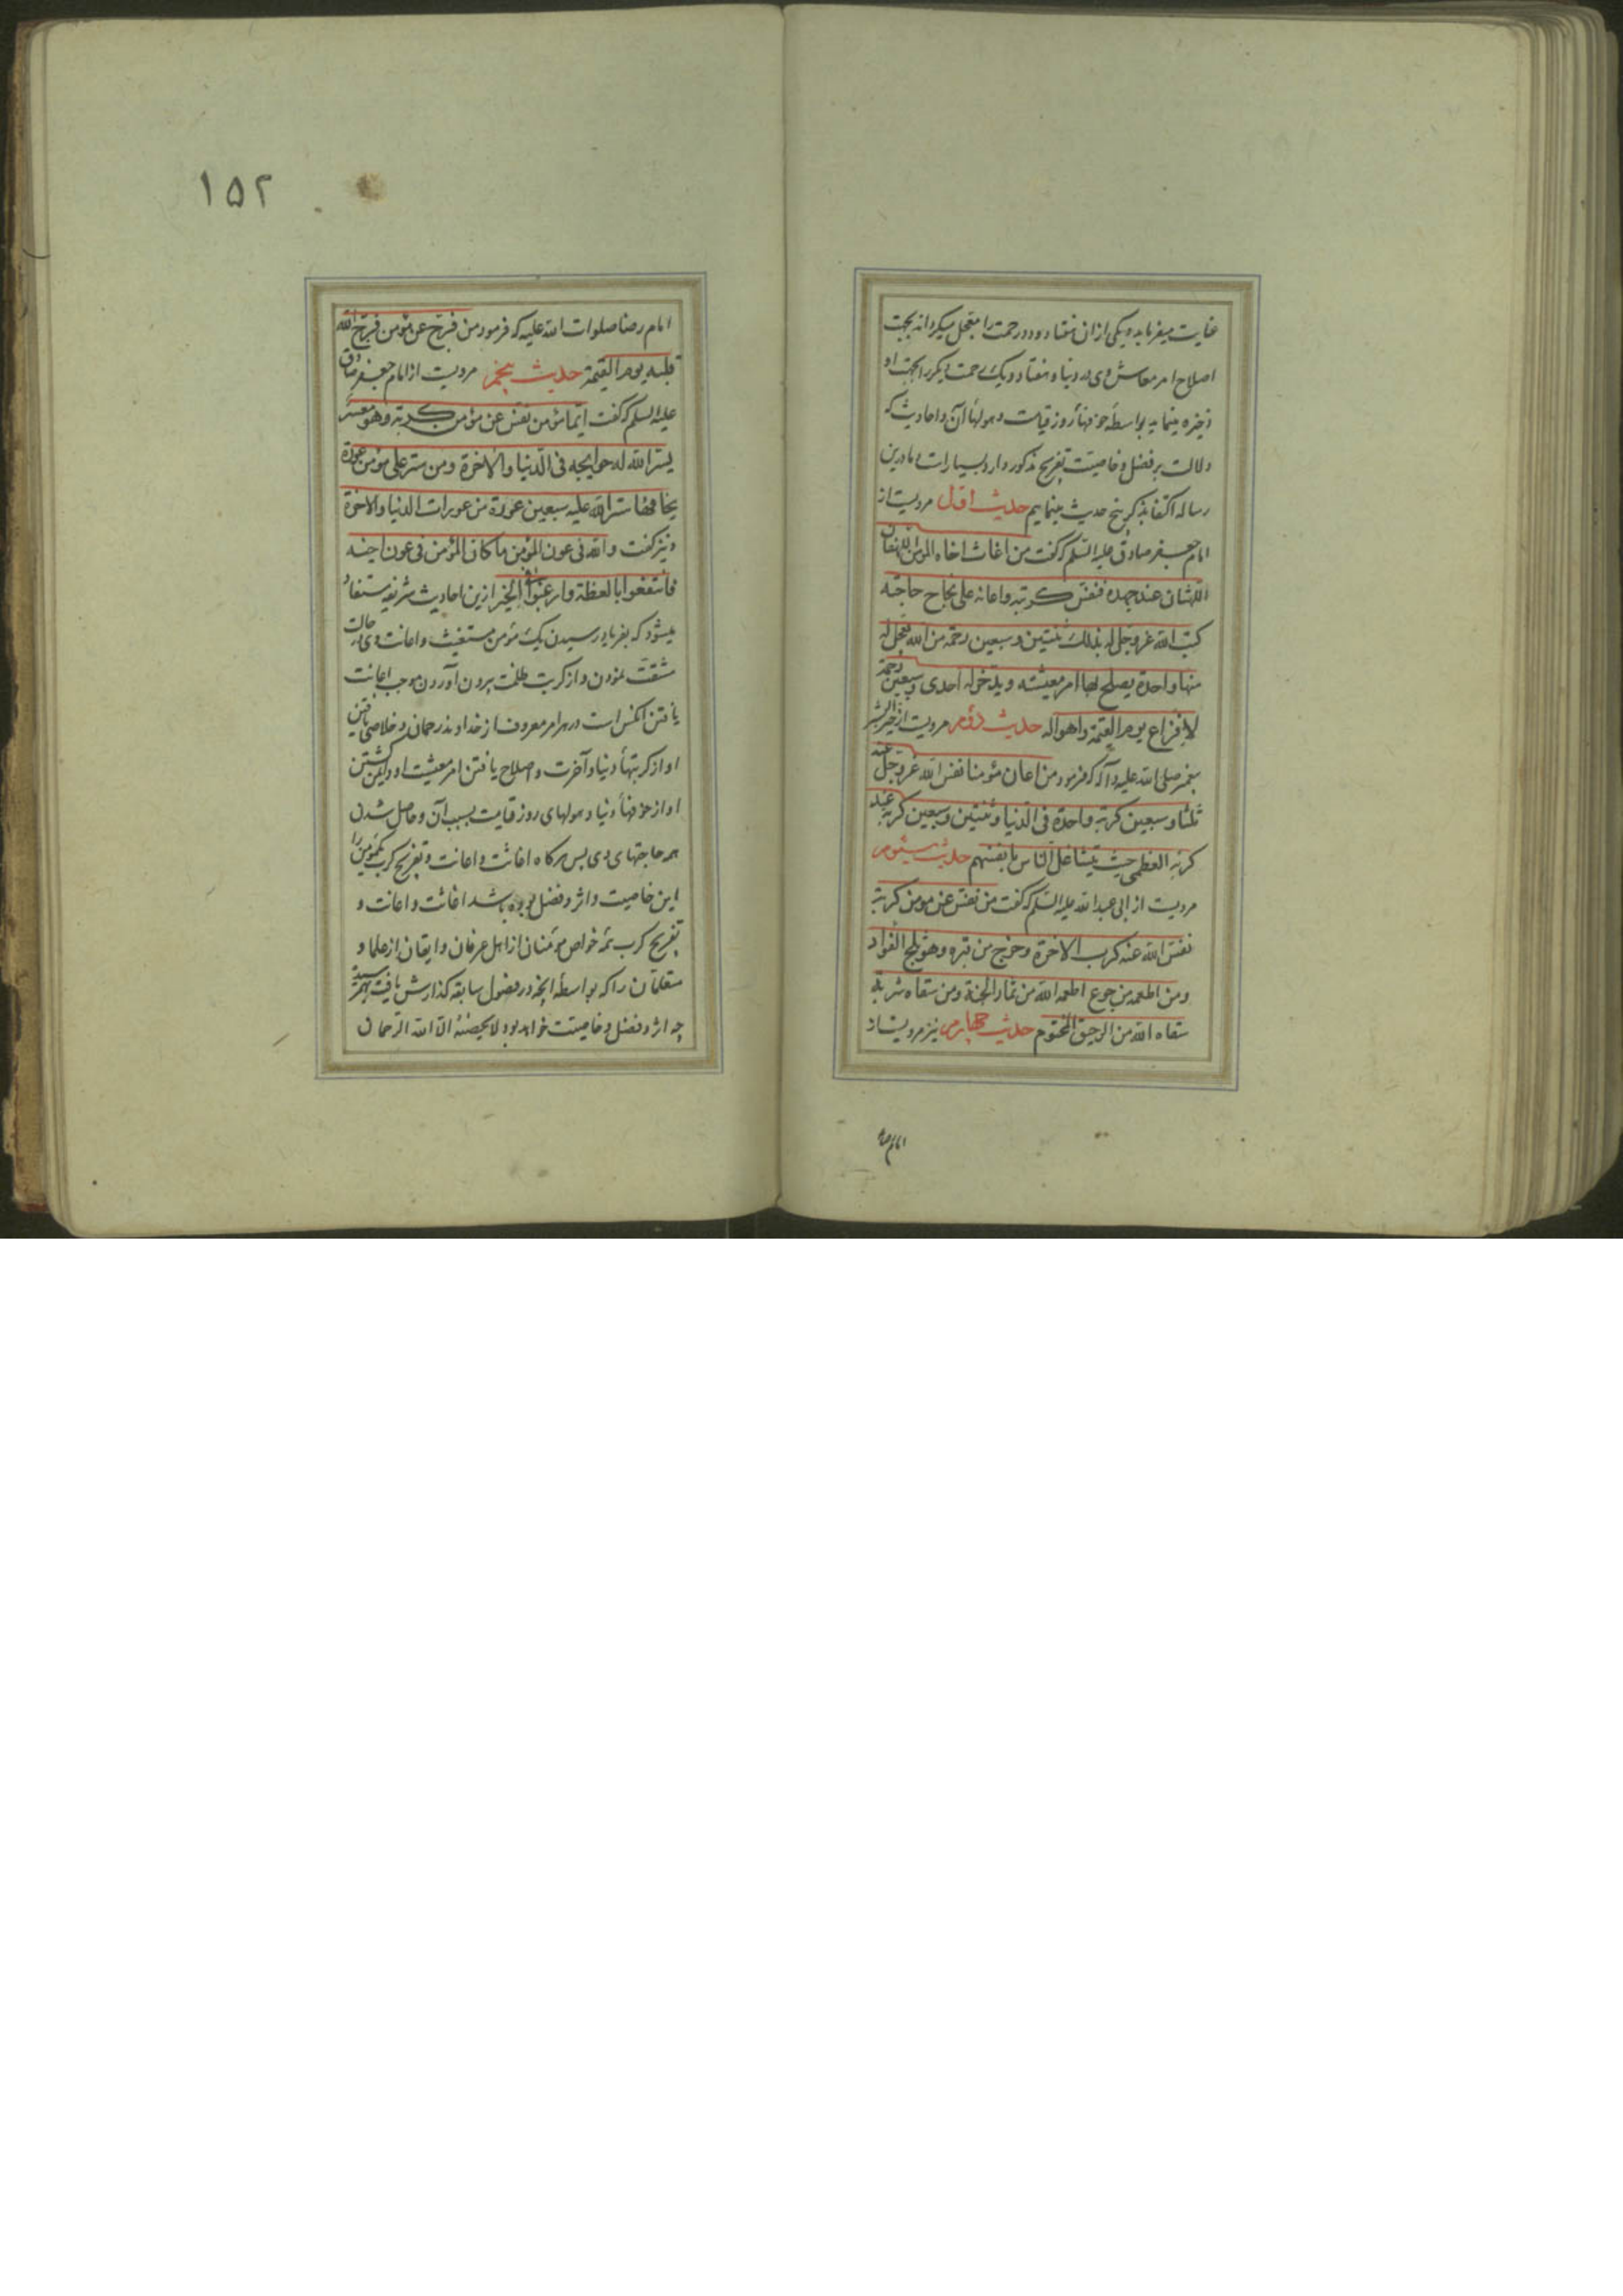 عنایت میفرماید و یکی از ان هفتاد و دو رحمت را معجل میکرداند بجهت
اصلاح امر معاش وی در دنیا و هفتاد و یک رحمت دیکر را بجهت او
ذخیره مینماید بواسطهٔ خوفهاء روز قیامت و هولهاء آن و احادیث که
دلالت بر فضل و خاصیت تفریح مذکور دارد بسیارات و ما درین
رساله اکتفا بذکر پنج حدیث مینمایم حدیث اول مرویست از
امام جعفر صادق علیه السلم که گفت من اغاث اخاه المومن اللهفان
اللهثان عند جهده فنفس کربته و اعانه علی نجاح حاجته
کتب الله عز و جل له بذلک ثنتین و سبعین رحمة من الله یعجل له
منها واحدة یصلح بها امر معیشته و یدخر له احدی و سبعین رحمة
لافزاع یوم القیمة و اهواله حدیث دوم مرویست از خیر البشر
پیغمبر صلی الله علیه و آله که فرمود من اعان مؤمنا نفس الله عز و جل عنه
ثلثا و سبعین کربة واحدة فی الدنیا و ثنتین و سبعین کربة عند
کربه العظمی حیث یتشاغل الناس بانفسهم حدیث سیوم
مرویست از ابی عبدالله علیه السلم که گفت من نفس عن مومن کربة
نفس الله عنه کرب الاخرة و خرج من قبره و هو ثلج الفواد
و من اطعمه من جوع اطعمه الله من ثمار الجنة و من سقاه شربة
سقاه الله من الرحیق المختوم حدیث چهارم نیز مرویست از
امام رضا
۱۵۲
امام رضا صلوات الله علیه که فرمود من فرج عن مؤمن فرج الله
قلبه یوم القیمة حدیث پنجم مرویست از امام جعفر صادق
علیه السلم که گفت ایما مؤمن نفس عن مؤمن کربة و هو معسر
یسر الله له حوایجه فی الدنیا و الاخرة و من ستر علی مؤمن عورة
یخافها ستر الله علیه سبعین عورة من عورات الدنیا و الاخرة
و نیز گفت و الله فی عون المؤمن ما کان المؤمن فی عون اخیه
فانتفعوا بالعظة و ارغبوا فی الخیر ازین احادیث شریفه مستفاد
میشود که بفریاد رسیدن یک مؤمن مستغیث و اعانت وی در حالت
مشقت نمودن و از کربت ظلمت بیرون آوردن موجب اعانت
یافتن انکس است در هر امر معروف از خداوند رحمان و خلاصی یافتن
او از کربتهاء دنیا و آخرت و اصلاح یافتن امر معیشت او و ایمن کشتن
او از خوفهاء دنیا و هولهای روز قیامت بسبب آن و حاصل شدن
همه حاجتهای وی پس هرکاه اغاثت و اعانت و تفریح کرب یک مؤمن را
این خاصیت و اثر و فضل بوده باشد اغاثت و اعانت و
تفریح کرب همه خواص مؤمنان از اهل عرفان و ایقان از علما و
متعلمان را که بواسطهٔ آنچه در فصول سابقه کذارش یافت بهم رسیده
چه اثر و فضل و خاصیت خواهد بود لا یحصیه الا الله الرحمان